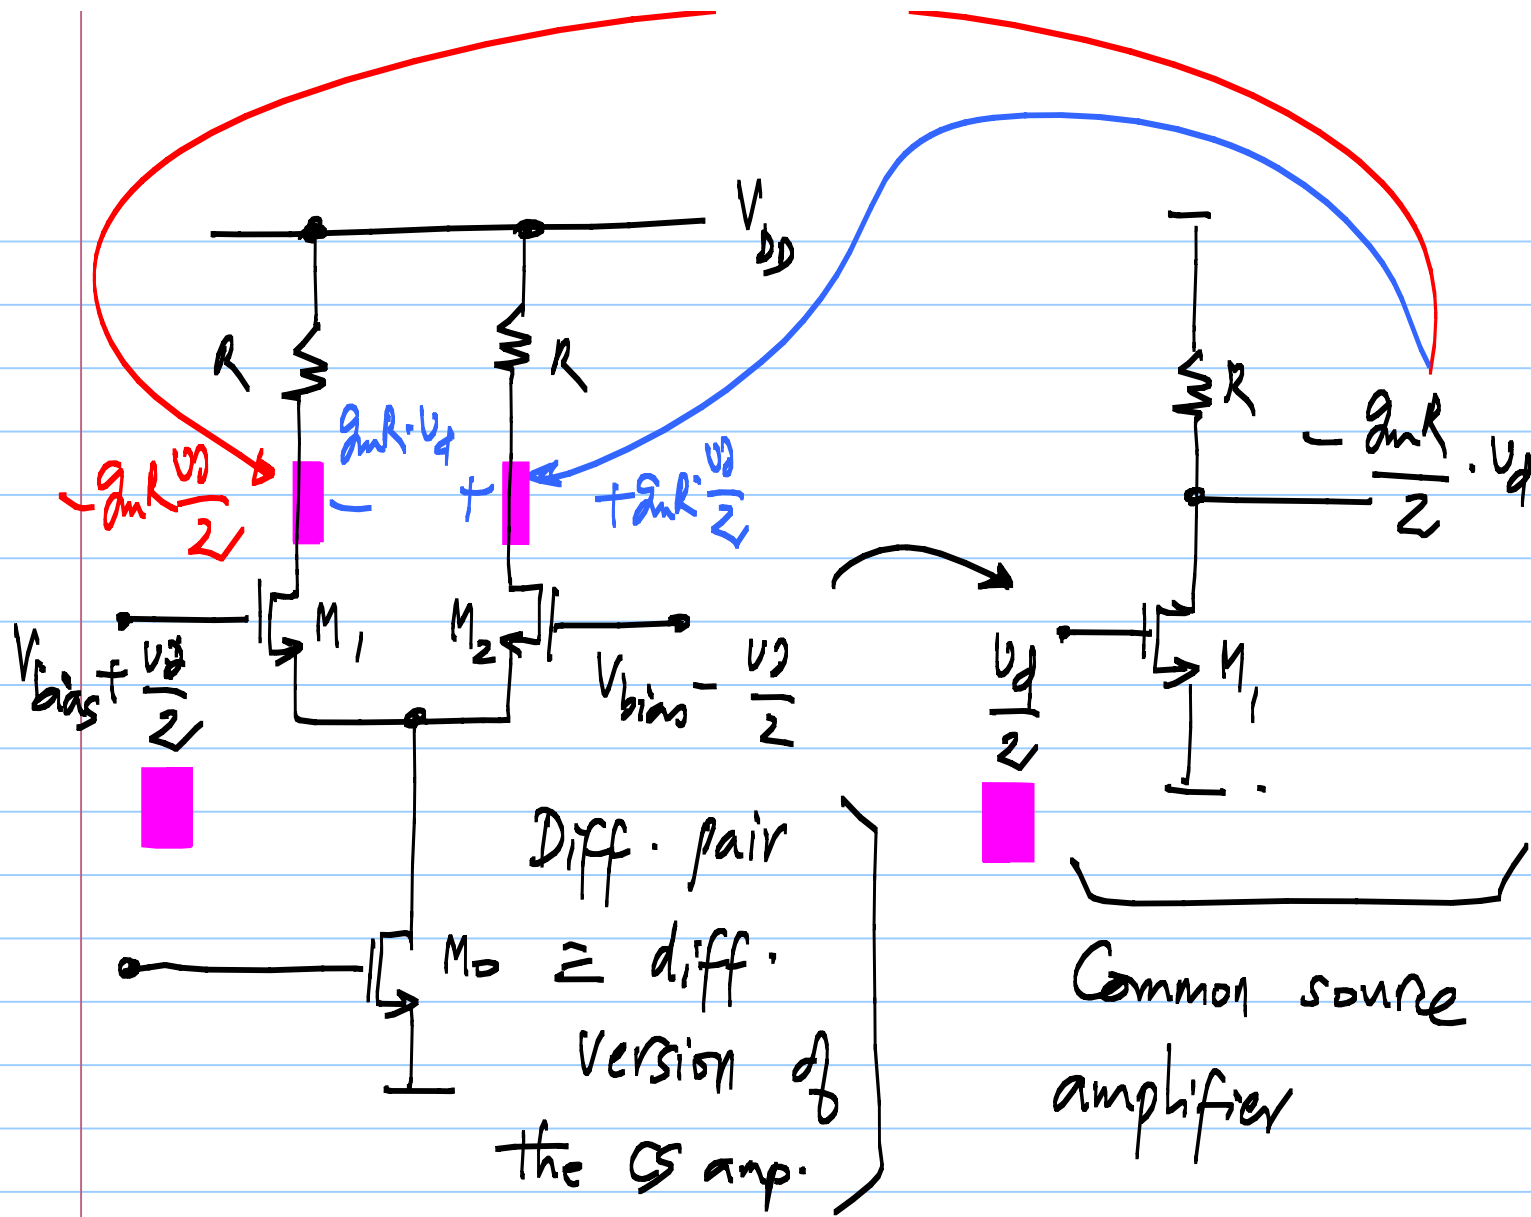 V_DD
R
R
R
g_m R · v_d
− g_m R v_d/2
−
+
+ g_m R · v_d/2
− g_m R/2 · v_d
M_1
M_2
V_bias + v_d/2
V_bias − v_d/2
v_d/2
M_1
Diff. pair
M_0
≡ diff.
version of
the CS amp.
Common source
amplifier